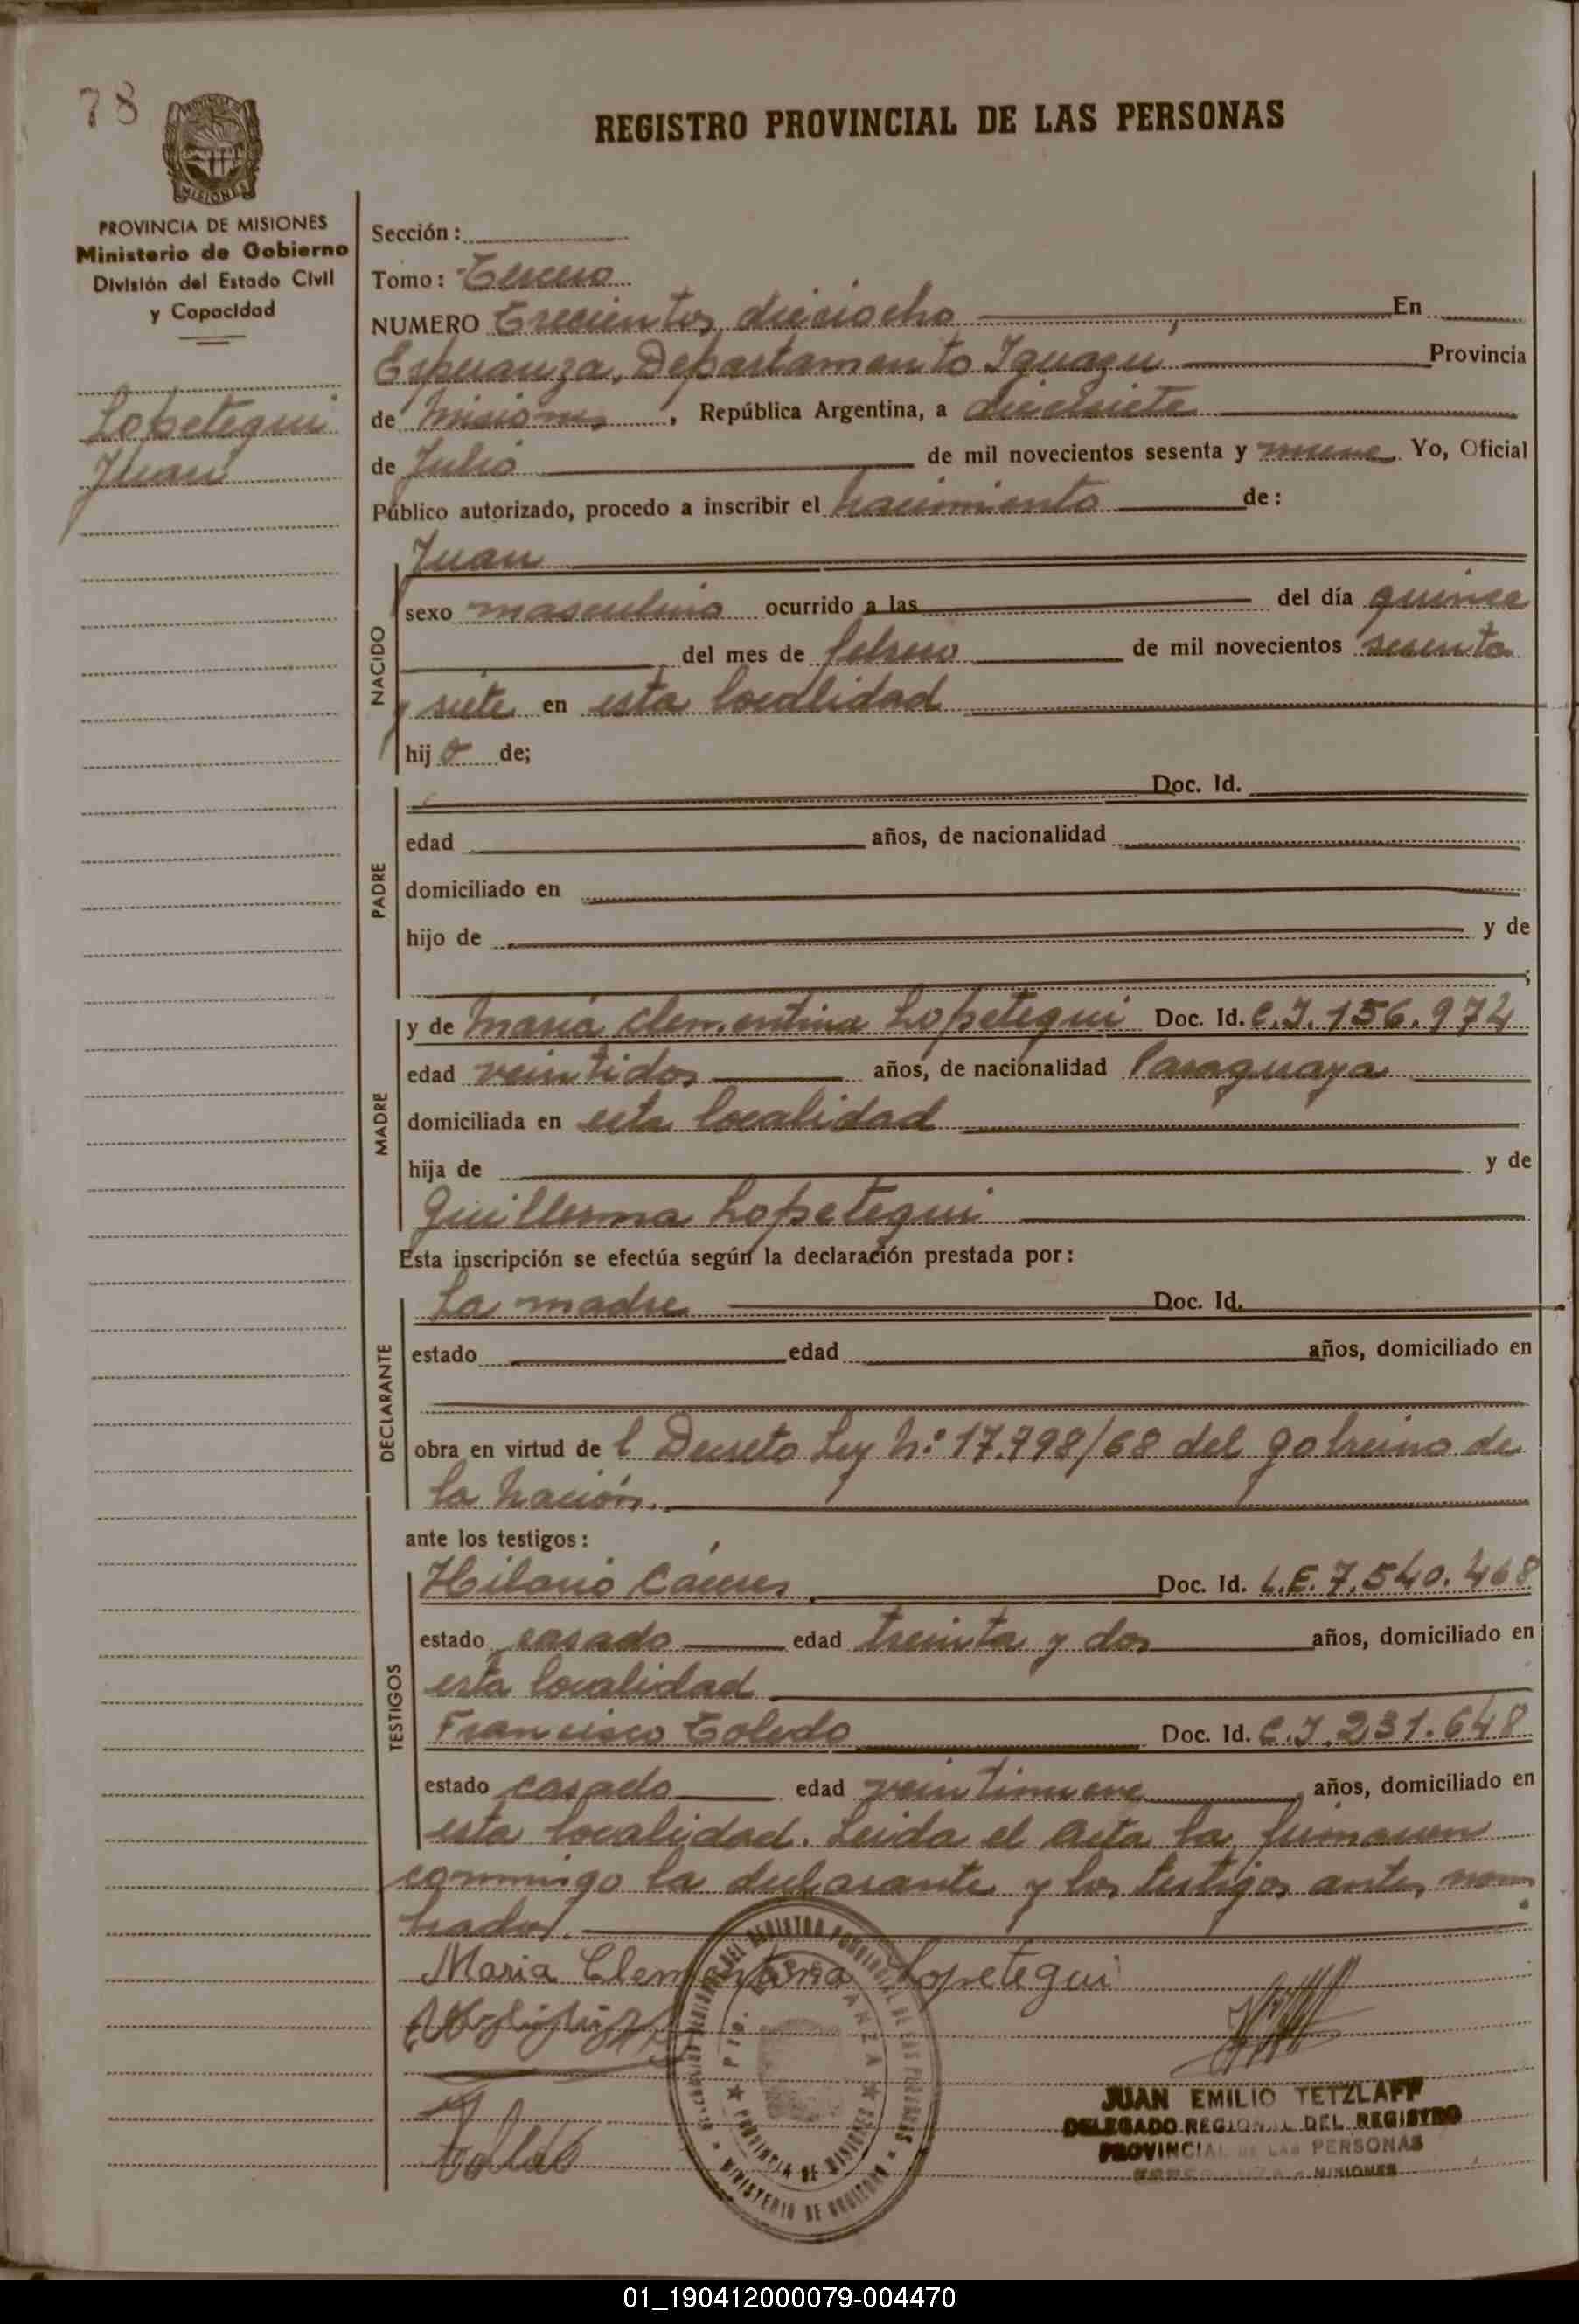 78
REGISTRO PROVINCIAL DE LAS PERSONAS
MISIONES
PROVINCIA DE MISIONES
Ministerio de Gobierno
División del Estado Civil
y Capacidad
Lopetegui
Juan
Sección:
Tomo: Tercero
NUMERO Trecientos dieciocho, En
Esperanza, Departamento Iguazu Provincia
de Misiones, República Argentina, a diecisiete
de Julio de mil novecientos sesenta y nueve Yo, Oficial
Público autorizado, procedo a inscribir el nacimiento de:
NACIDO
Juan
sexo masculino ocurrido a las del día quince
del mes de febrero de mil novecientos sesenta
y siete en esta localidad
hijo de;
PADRE
Doc. Id.
edad años, de nacionalidad
domiciliado en
hijo de y de
;
MADRE
y de María Clementina Lopetegui Doc. Id. C.I. 156.974
edad veintidos años, de nacionalidad Paraguaya
domiciliada en esta localidad
hija de y de
Guillerma Lopetegui
Esta inscripción se efectúa según la declaración prestada por:
DECLARANTE
La madre Doc. Id.
estado edad años, domiciliado en
obra en virtud de l Decreto Ley N.º 17.998/68 del gobreino de
la Nación.
ante los testigos:
TESTIGOS
Hilario Doc. Id. L.E. 7.540.468
estado casado edad treinta y dos años, domiciliado en
esta localidad
Francisco Toledo Doc. Id. C.I. 231.648
estado casado edad veintinueve años, domiciliado en
esta localidad. Leida el acta la firmaron
conmingo la declarante y los testigos antes nom
brados.
Maria Clementina Lopetegui
JUAN EMILIO TETZLAFF
DELEGADO REGIONAL DEL REGISTRO
PROVINCIAL DE LAS PERSONAS
ESPERANZA - MISIONES
PROVINCIA DE MISIONES
01_190412000079-004470